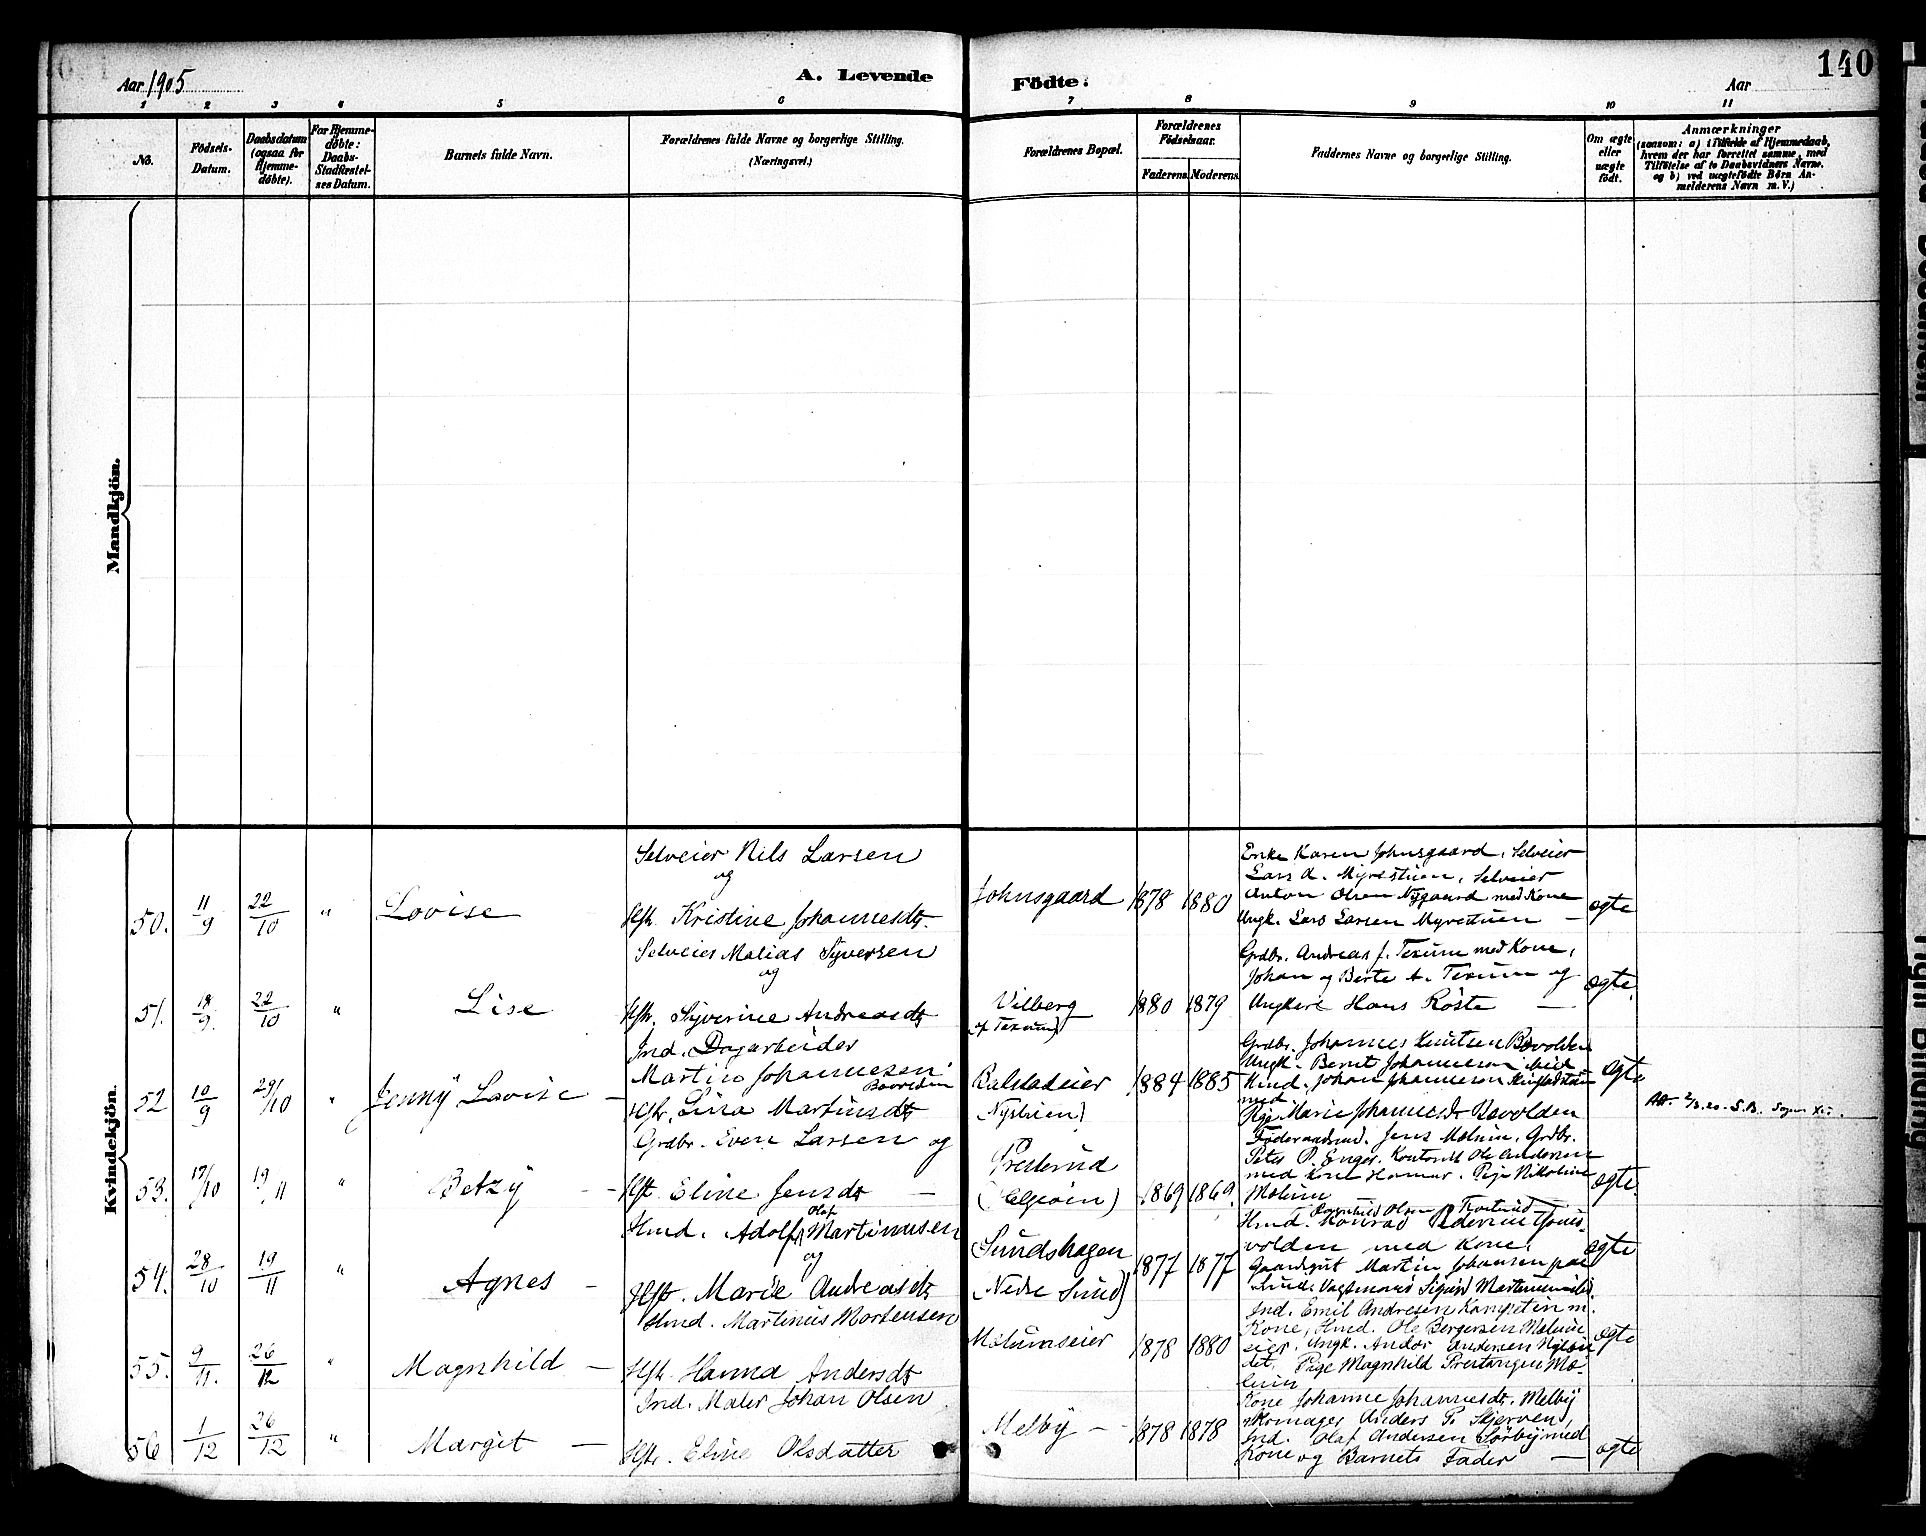 Aar 1905
A. Levende
Födte.
Aar
140
1 2 3 4 5 6 7 8 9 10 11
No.
Födsels-
Datum.
Daabsdatum
(ogsaa for
Hjemme-
döbte).
For Hjemme-
döbte:
Daabs-
Stadfæstel-
ses Datum.
Barnets fulde Navn.
Forældrenes fulde Navne og borgerlige Stilling.
(Næringsvei.)
Forældrenes Bopæl.
Forældrenes
Födselsaar.
Faderens.
Moderens.
Faddernes Navne og borgerlige Stilling.
Om ægte
eller
uægte
födt.
Anmærkninger
(saasom: a) i Tilfælde af Hjemmedaab,
hvem der har forrettet samme, med
Tilföielse af to Daabsvidners Navne,
og b) ved uægtefödte Börn An-
melderens Navn m. V.)
Mandkjön.
Kvindekjön.
50.
11/9
22/10
"
Lovise
Selveier Nils Larsen
og
Hst. Kristine Johannesdt.
Johnsgaard
1878
1880
Enke Karen Johnsgaard, Selveier
Lars A. Myrstuen, Selveier
Anton Olsen Nygaard med Kone
Ungk. Lars Larsen Myrstuen —
ægte
51.
18/9.
22/10
"
Lise
Selveier Matias Syversen
og
Hst. Syverine Andreasdt
Vilberg
(af Texum)
1880
1879
Grdbr. Andreas J. Texum med Kone,
Johan og Berte A. Texum og
Ungkare Hans Röste —
ægte.
52
10/9
29/10
"
Jenny Lovise —
Ind. Dagarbeider
Martin Johannesen
Hst. Lina Martinsdt
Balstadeier
Nystuen)
1884
1885
Grdbr. Johannes Knutsen Bovolden
Ungk. Bernt Johannesen ibid
Hmd. Johan Johannesen
med
Pige Marie Johannesdt Bovolden
ægte
53.
17/10
19/11
"
Betzy —
Grdbr. Even Larsen og
Hst. Eline Jensdt —
Presterud
1869
1869.
Föderaadsmd. Jens Mælum, Grdbr.
Peter P. Enger, Kontorist Ole Andersen
med Kone Hamar, Pige Nikoline
Mælum
ægte.
54.
28/10
19/11
"
Agnes —
Olaf
Hmd. Adolf Martinusen
og
Hst. Marie Andreasdt
Sundshagen
(Nedre Sund)
1877
1877
Hmd. Konrad
volden med Kone,
Gaardsgut Martin Johansen paa
Sund,
ægte
55.
9/11.
26/12
"
Magnhild —
Hmd. Martinus Mortensen
Hst. Hanna Andersdt
Mælumseier
1878
1880
Ind. Emil Andresen m.
Kone, Hmd. Ole Bergersen Mælum
eier, Ungk. Andor Andersen
det, Pige Magnhild Prestangen Mæ-
lum
ægte
56
1/12
26/12
"
Margit —
Ind. Maler Johan Olsen
Hst. Eline Olsdatter
Melby —
1878
1878
Kone Johanne Johannesdt. Melby
Skomager Anders P. Skjerven,
Ind. Olaf Andersen Sörby med
Kone og Barnets Fader —
ægte